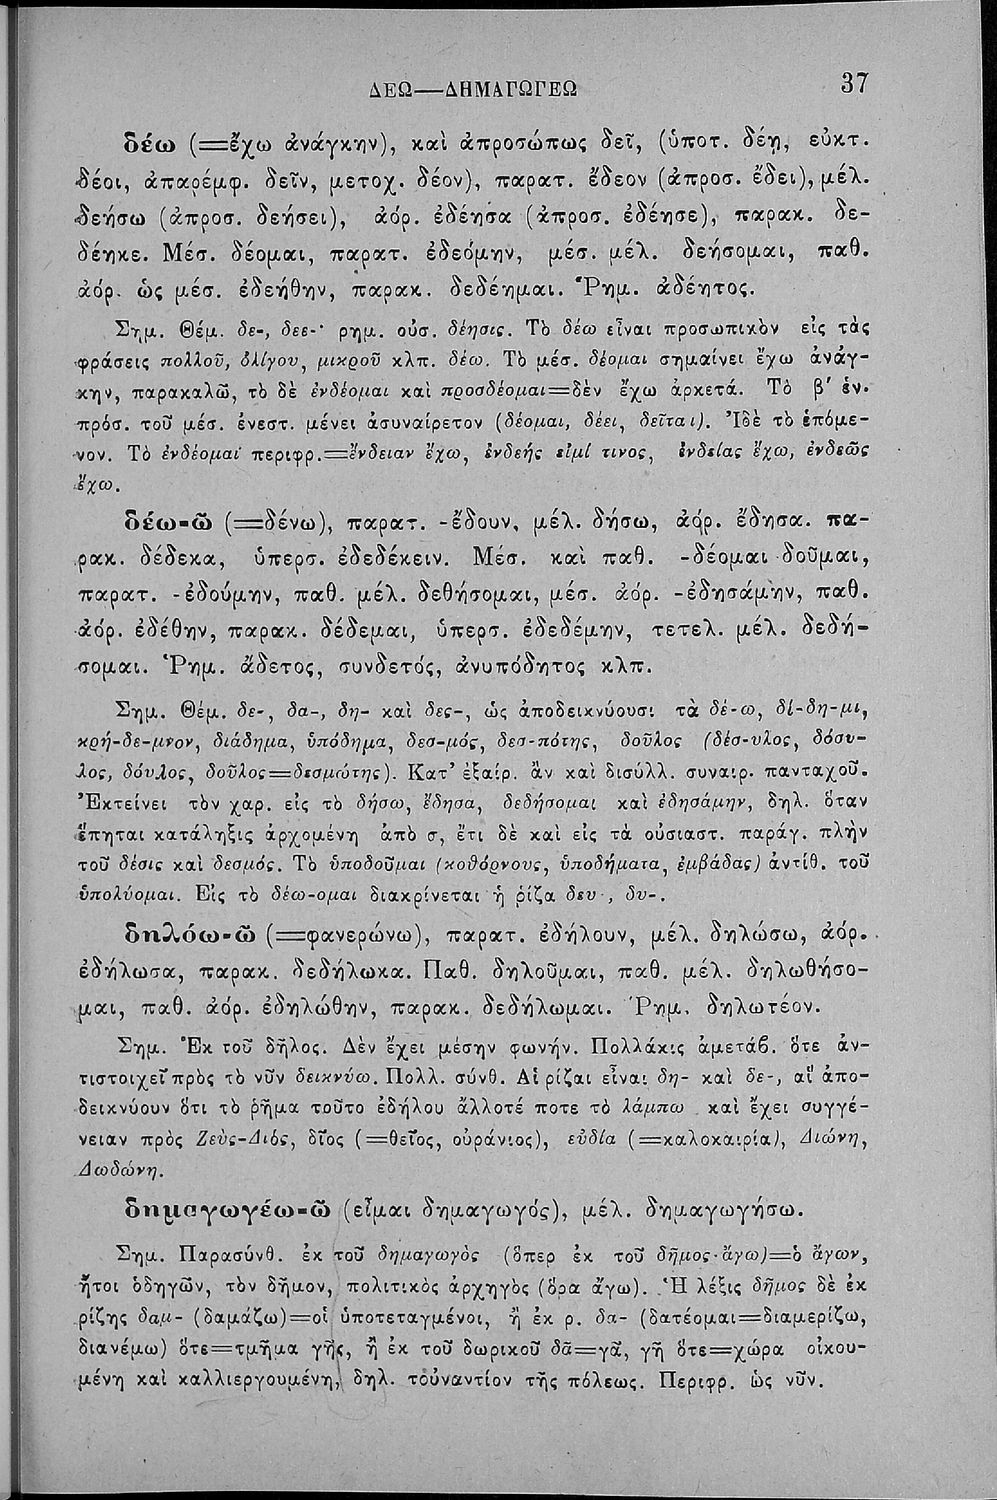 ΔΕΩ—ΔΗΜΑΓΩΓΕΩ 37
δέω (=ἔχω ἀνάγκην), καὶ ἀπροσώπως δεῖ, (ὑποτ. δέῃ, εὐκτ.
δέοι, ἀπαρέμφ. δεῖν, μετοχ. δέον), παρατ. ἔδεον (ἀπροσ. ἔδει), μέλ.
δεήσω (ἀπροσ. δεήσει), ἀόρ. ἐδέησα (ἀπροσ. ἐδέησε), παρακ. δε-
δέηκε. Μέσ. δέομαι, παρατ. ἐδεόμην, μέσ. μέλ. δεήσομαι, παθ.
ἀόρ. ὡς μέσ. ἐδεήθην, παρακ. δεδέημαι. Ῥημ. ἀδέητος.
Σημ. Θέμ. δε-, δεε-· ρημ. οὐσ. δέησις. Τὸ δέω εἶναι προσωπικὸν εἰς τὰς
φράσεις πολλοῦ, ὀλίγου, μικροῦ κλπ. δέω. Τὸ μέσ. δέομαι σημαίνει ἔχω ἀνάγ-
κην, παρακαλῶ, τὸ δὲ ἐνδέομαι καὶ προσδέομαι=δὲν ἔχω ἀρκετά. Τὸ β′ ἑν.
πρόσ. τοῦ μέσ. ἐνεστ. μένει ἀσυναίρετον (δέομαι, δέει, δεῖται). Ἰδὲ τὸ ἑπόμε-
νον. Τὸ ἐνδέομαι περιφρ.=ἔνδειαν ἔχω, ἐνδεής εἰμί τινος, ἐνδείας ἔχω, ἐνδεῶς
ἔχω.
δέω-ῶ (=δένω), παρατ. -ἔδουν, μέλ. δήσω, ἀόρ. ἔδησα. πα-
ρακ. δέδεκα, ὑπερσ. ἐδεδέκειν. Μέσ. καὶ παθ. -δέομαι -δοῦμαι,
παρατ. -ἐδούμην, παθ. μέλ. δεθήσομαι, μέσ. ἀόρ. -ἐδησάμην, παθ.
ἀόρ. ἐδέθην, παρακ. δέδεμαι, ὑπερσ. ἐδεδέμην, τετελ. μέλ. δεδή-
σομαι. Ῥημ. ἄδετος, συνδετός, ἀνυπόδητος κλπ.
Σημ. Θέμ. δε-, δα-, δη- καὶ δες-, ὡς ἀποδεικνύουσι τὰ δέ-ω, δί-δη-μι,
κρή-δε-μνον, διάδημα, ὑπόδημα, δεσ-μός, δεσ-πότης, δοῦλος (δέσ-υλος, δόσυ-
λος, δόυλος, δοῦλος=δεσμώτης). Κατ' ἐξαίρ. ἂν καὶ δισύλλ. συναιρ. πανταχοῦ.
Ἐκτείνει τὸν χαρ. εἰς τὸ δήσω, ἔδησα, δεδήσομαι καὶ ἐδησάμην, δηλ. ὅταν
ἕπηται κατάληξις ἀρχομένη ἀπὸ σ, ἔτι δὲ καὶ εἰς τὰ οὐσιαστ. παράγ. πλὴν
τοῦ δέσις καὶ δεσμός. Τὸ ὑποδοῦμαι (κοθόρνους, ὑποδήματα, ἐμβάδας) ἀντίθ. τοῦ
ὑπολύομαι. Εἰς τὸ δέω-ομαι διακρίνεται ἡ ῥίζα δευ-, δυ-.
δηλόω-ῶ (=φανερώνω), παρατ. ἐδήλουν, μέλ. δηλώσω, ἀόρ.
ἐδήλωσα, παρακ. δεδήλωκα. Παθ. δηλοῦμαι, παθ. μέλ. δηλωθήσο-
μαι, παθ. ἀόρ. ἐδηλώθην, παρακ. δεδήλωμαι. Ῥημ. δηλωτέον.
Σημ. Ἐκ τοῦ δῆλος. Δὲν ἔχει μέσην φωνήν. Πολλάκις ἀμετάβ. ὅτε ἀν-
τιστοιχεῖ πρὸς τὸ νῦν δεικνύω. Πολλ. σύνθ. Αἱ ρίζαι εἶναι δη- καὶ δε-, αἳ ἀπο-
δεικνύουν ὅτι τὸ ῥῆμα τοῦτο ἐδήλου ἄλλοτέ ποτε τὸ λάμπω καὶ ἔχει συγγέ-
νειαν πρὸς Ζεὺς-Διός, δῖος (=θεῖος, οὐράνιος), εὐδία (=καλοκαιρία), Διώνη,
Δωδώνη.
δημαγωγέω-ῶ (εἶμαι δημαγωγός), μέλ. δημαγωγήσω.
Σημ. Παρασύνθ. ἐκ τοῦ δημαγωγὸς (ὅπερ ἐκ τοῦ δῆμος-ἄγω)=ὁ ἄγων,
ἤτοι ὁδηγῶν, τὸν δῆμον, πολιτικὸς ἀρχηγὸς (ὅρα ἄγω). Ἡ λέξις δῆμος δὲ ἐκ
ρίζης δαμ- (δαμάζω)=οἱ ὑποτεταγμένοι, ἢ ἐκ ρ. δα- (δατέομαι=διαμερίζω,
διανέμω) ὅτε=τμῆμα γῆς, ἢ ἐκ τοῦ δωρικοῦ δᾶ=γᾶ, γῆ ὅτε=χώρα οἰκου-
μένη καὶ καλλιεργουμένη, δηλ. τοὐναντίον τῆς πόλεως. Περιφρ. ὡς νῦν.